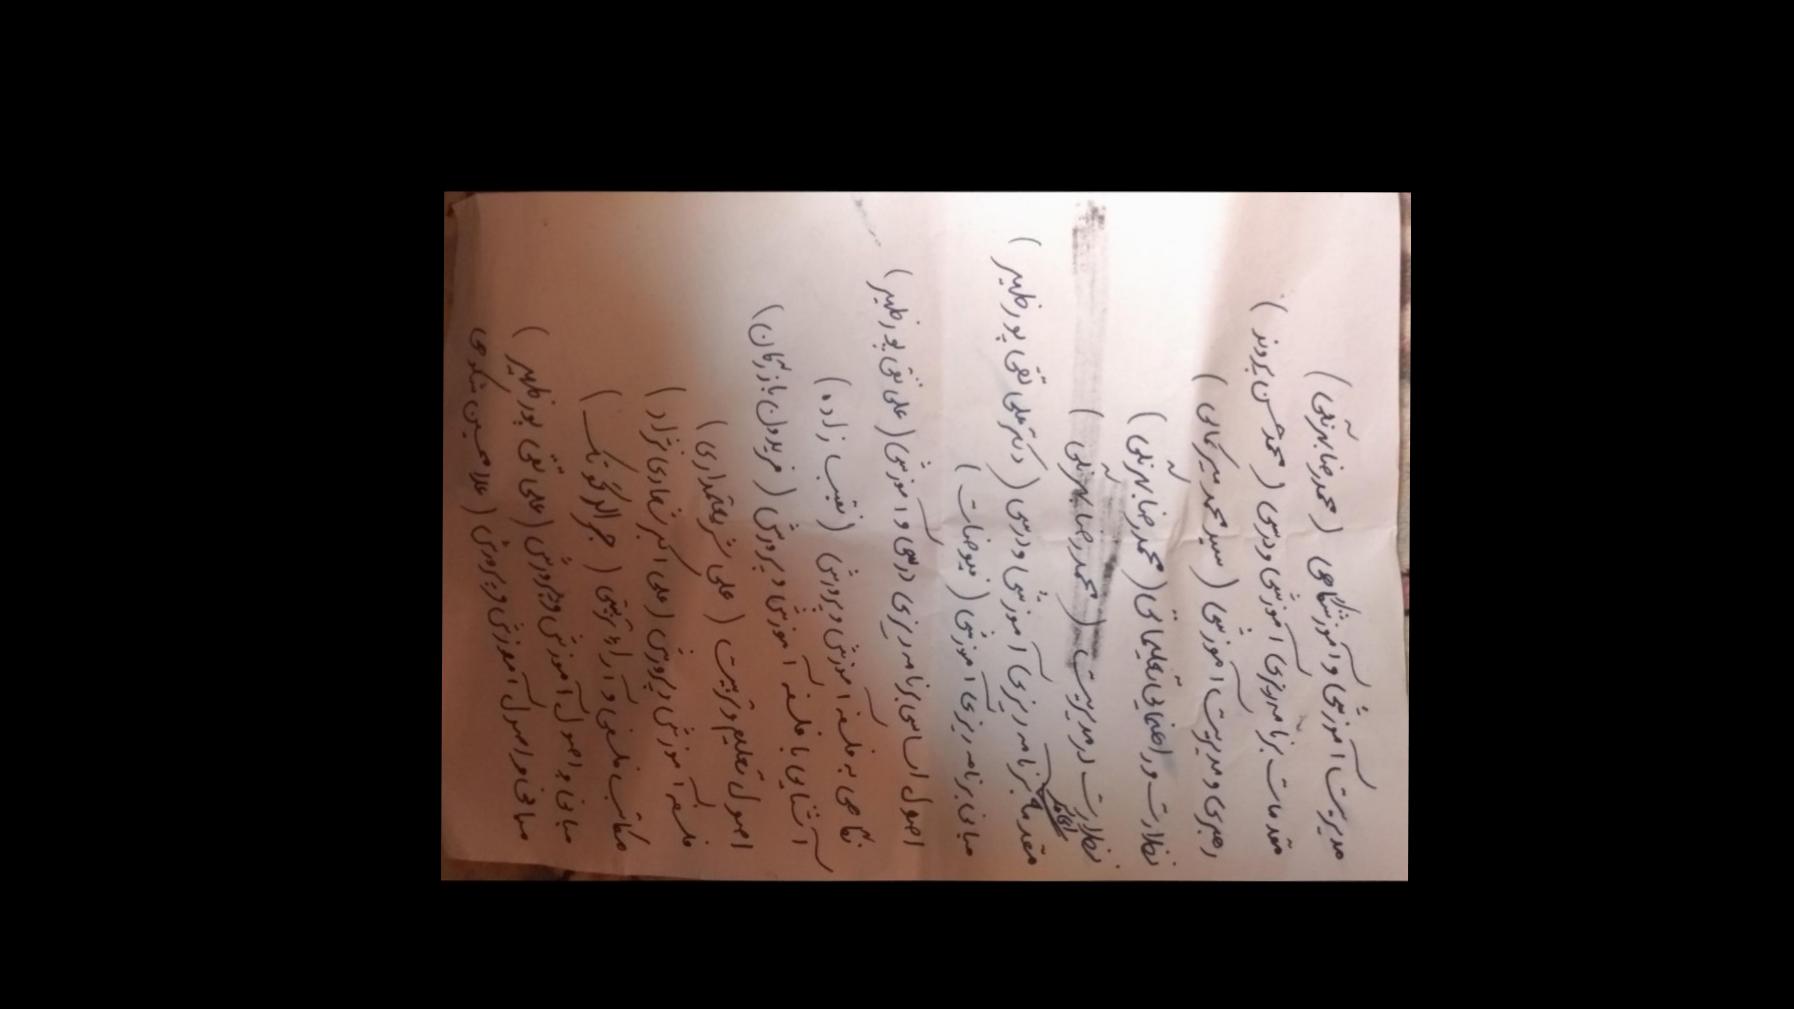 مدیریت آموزشی و آموزشگاهی (محمدرضا بهرنگی)
مقدمات برنامه ریزی آموزشی و درسی (محمدحسن پروند)
رهبری و مدیریت آموزشی (سید محمد میرکمالی)
نظارت و راهنمایی تعلیماتی (محمدرضا بهرنگی)
نظارت در مدیریت (محمدرضا بهرنگی)
مقدمه برنامه ریزی آموزشی و درسی (دکتر علی تقی پور ظهیر)
مبانی برنامه ریزی آموزشی (فیوضات)
اصول اساسی برنامه ریزی درسی و آموزشی (علی تقی پور ظهیر)
نگاهی به فلسفه آموزش و پرورش (نقیب زاده)
آشنایی با فلسفه آموزش و پرورش (فریدون بازرگان)
اصول تعلیم و تربیت (علی شریعتمداری)
فلسفه آموزش و پرورش (علی اکبر شعاری نژاد)
مکاتب فلسفی و آراء تربیتی (جرالد گوتک)
مبانی و اصول آموزش و پرورش (علی تقی پور ظهیر)
مبانی و اصول آموزش و پرورش (غلامحسین شکوهی